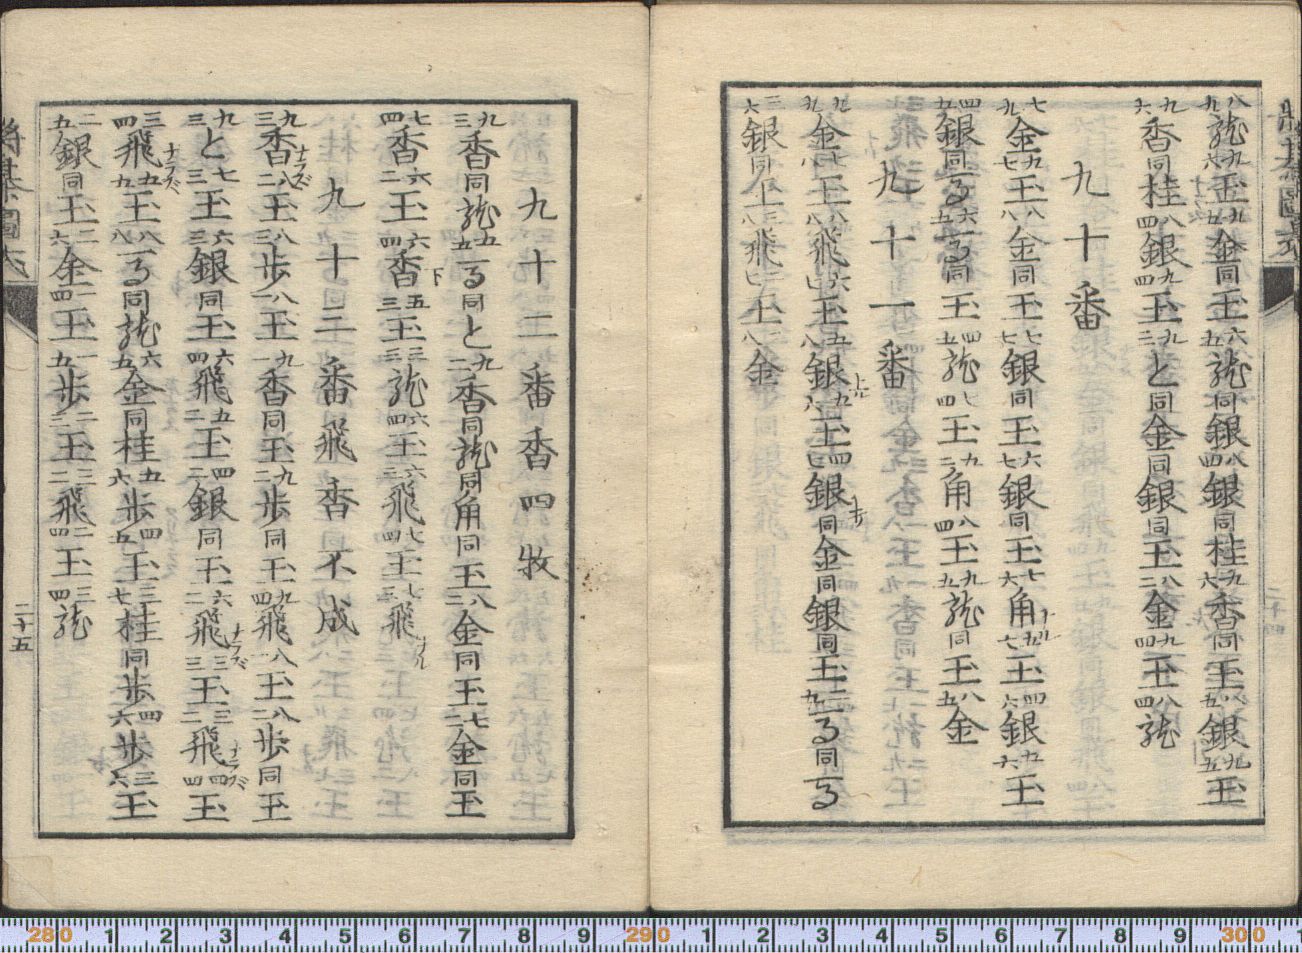 八九龍九六玉九五金同玉六五龍同銀八四銀同桂九六香同玉八五銀九五玉
九六香同桂八四銀九四玉九三と同金同銀同玉八二金九四玉八四龍
九十番
七九金九七玉八八金同玉七七銀同玉六七銀同玉七六角ナル五七玉四六銀五六玉
四五銀同馬六五馬同玉四五龍七四玉九二角八四玉九九龍同玉八五金
九十一番
九九金七八玉八八飛六七玉五八銀上ル九六玉四七銀同金同銀同玉二九馬同馬
三六銀同玉三八飛二七玉二八金
九十二番香四牧
九三香同龍五五馬同と九二香同龍同角同玉八二金同玉七二金同玉
七四香六二玉六四香下五三玉三三龍六四玉六二飛七四玉七二飛ナル
九十三番飛香不成
九三香ナラズ八二玉八三歩八一玉九一香同玉九二歩同玉九四飛八一玉八二歩同玉
九三と七三玉六三銀同玉六四飛五二玉四二銀同玉六二飛ナラズ三三玉三二飛ナラズ四四玉
三四飛ナラズ五九玉八八馬同龍六五金同桂五六歩四五玉三七桂同歩四六歩三六玉
二五銀同玉二六金一四玉一五歩二三玉三二飛二四玉三四龍
二十五